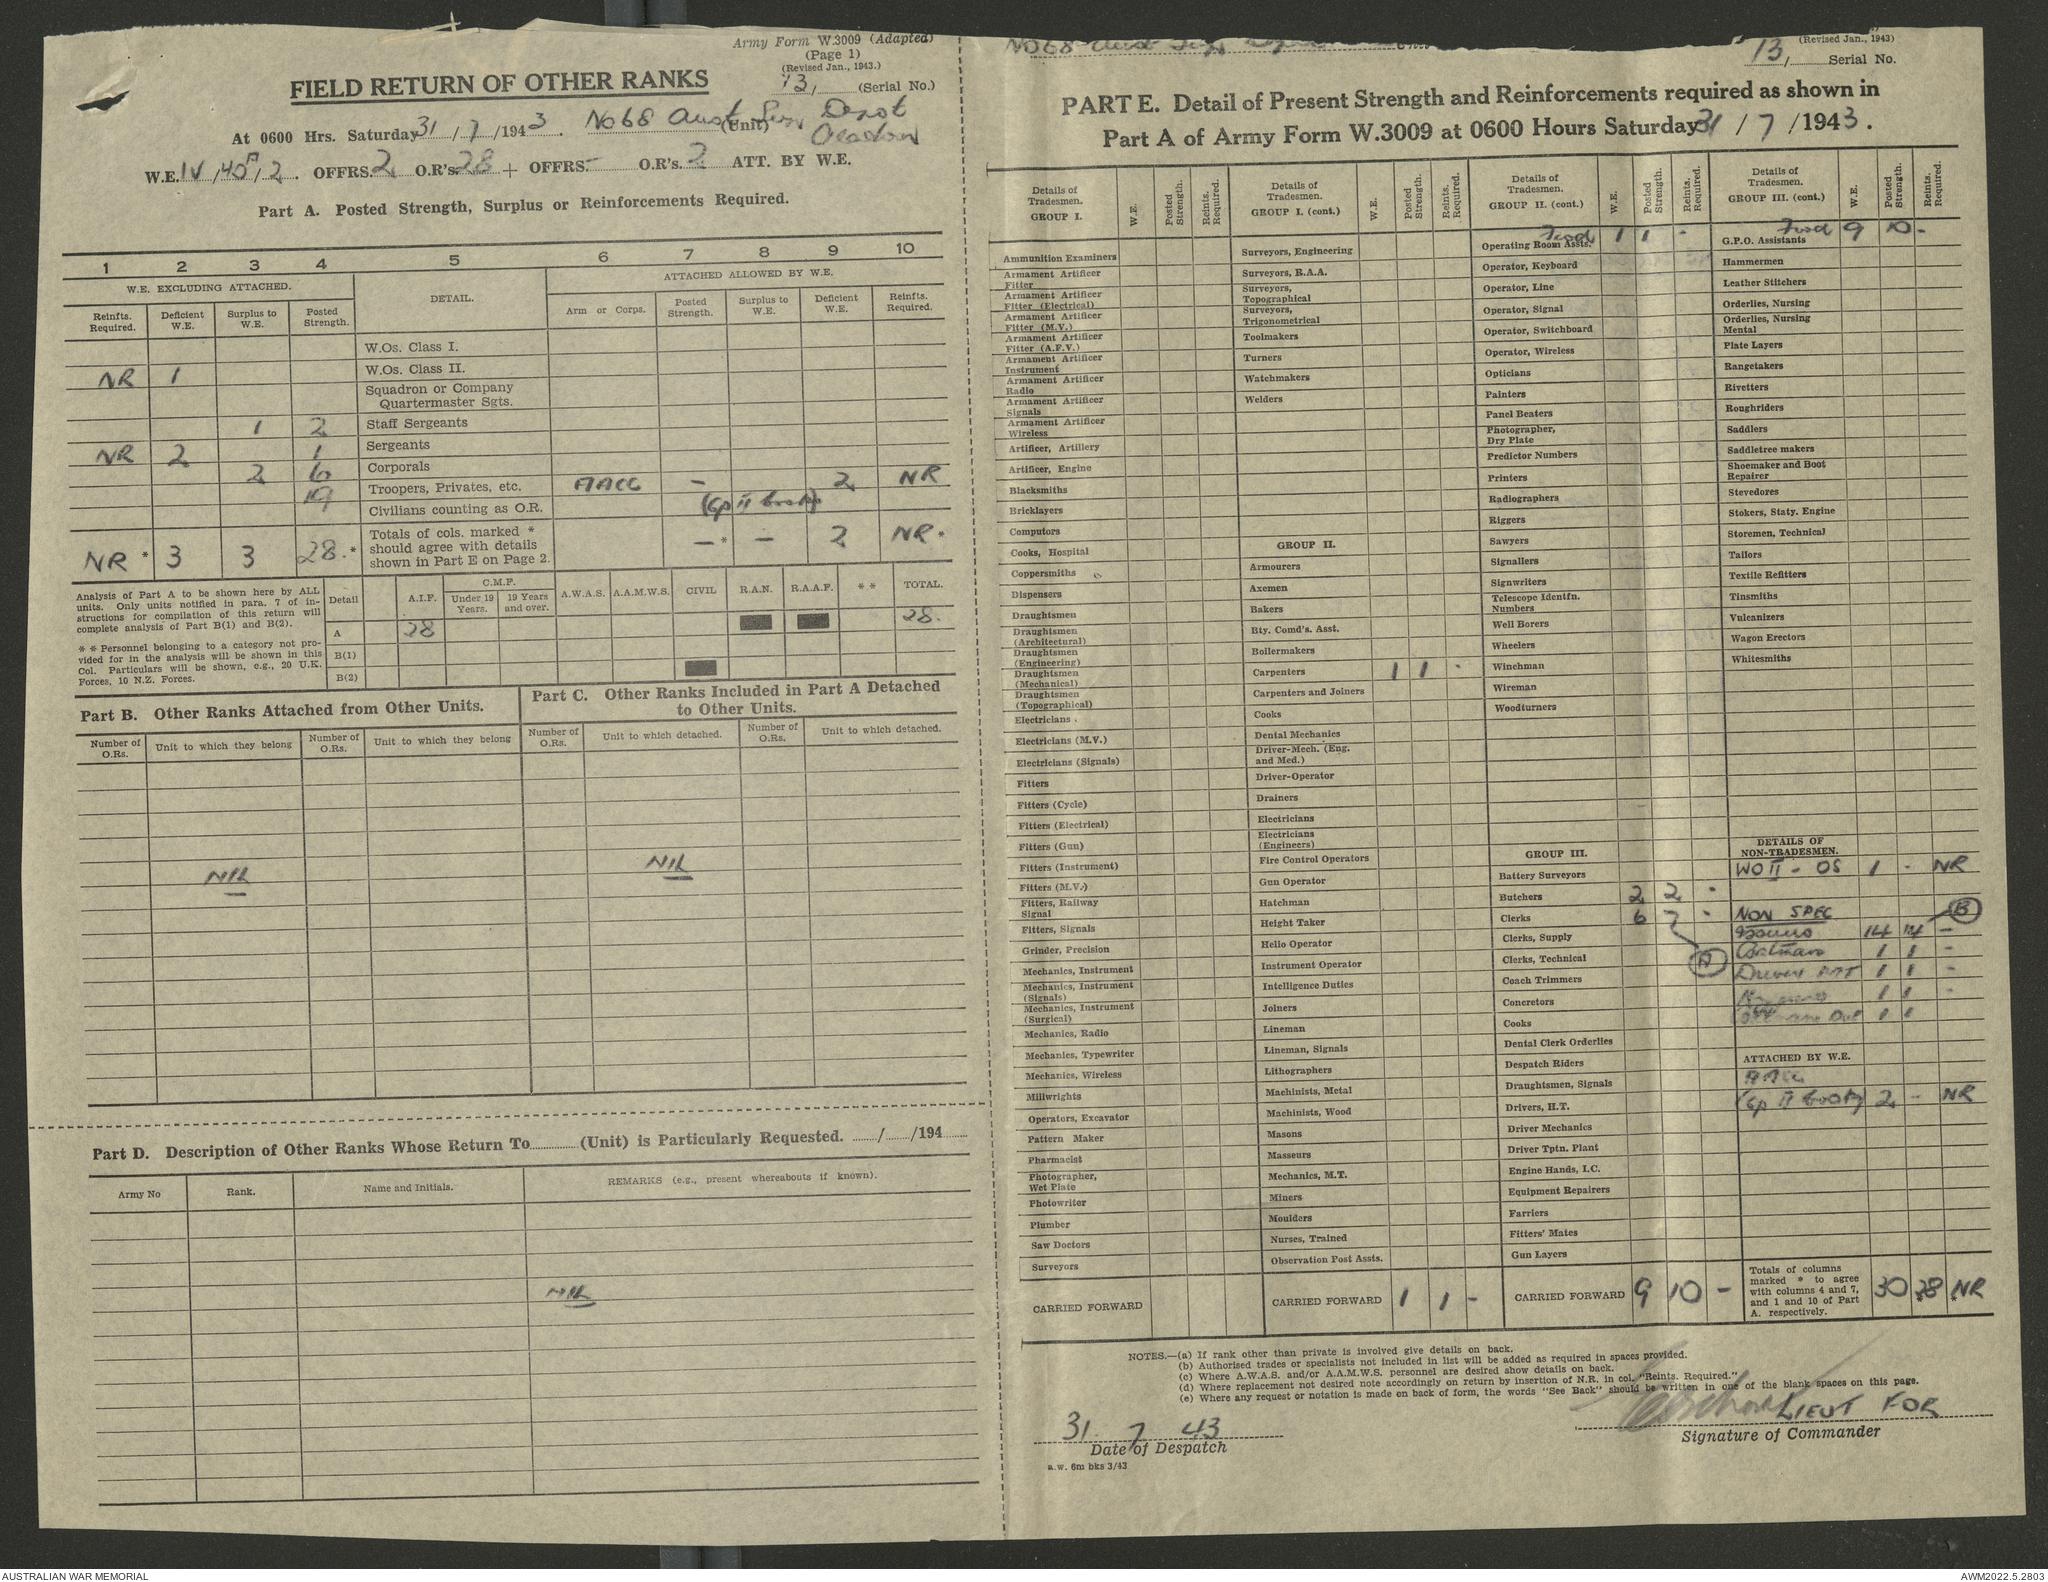 Army Form W.3009 (Adapted)
(Page 1)
(Revised Jan., 1943.)
FIELD RETURN OF OTHER RANKS
13, (Serial No.)
At 0600 Hrs. Saturday 31 / 7 / 1943. No 68 Aust Depot (Unit)
W.E. IV / / 2. OFFRS. 2 O.R's. 28 + OFFRS. - O.R's. 2 ATT. BY W.E.
Part A. Posted Strength, Surplus or Reinforcements Required.
1 2 3 4 5 6 7 8 9 10
W.E. EXCLUDING ATTACHED. DETAIL. ATTACHED ALLOWED BY W.E.
Reinfts. Required. Deficient W.E. Surplus to W.E. Posted Strength. Arm or Corps. Posted Strength. Surplus to W.E. Deficient W.E. Reinfts. Required.
W.Os. Class I.
NR 1 W.Os. Class II.
Squadron or Company Quartermaster Sgts.
1 2 Staff Sergeants
NR 2 1 Sergeants
2 6 Corporals
19 Troopers, Privates, etc. AACC - 2 NR
Civilians counting as O.R. (Gp II Cooks)
NR * 3 3 28 * Totals of cols. marked * should agree with details shown in Part E on Page 2. - * - 2 NR *
Analysis of Part A to be shown here by ALL units. Only units notified in para. 7 of instructions for compilation of this return will complete analysis of Part B(1) and B(2).
* * Personnel belonging to a category not provided for in the analysis will be shown in this Col. Particulars will be shown, e.g., 20 U.K. Forces, 10 N.Z. Forces.
Detail A.I.F. C.M.F. Under 19 Years. 19 Years and over. A.W.A.S. A.A.M.W.S. CIVIL R.A.N. R.A.A.F. * * TOTAL.
A 28 28.
B(1)
B(2)
Part B. Other Ranks Attached from Other Units.
Part C. Other Ranks Included in Part A Detached to Other Units.
Number of O.Rs. Unit to which they belong Number of O.Rs. Unit to which they belong Number of O.Rs. Unit to which detached. Number of O.Rs. Unit to which detached.
NIL NIL
Part D. Description of Other Ranks Whose Return To (Unit) is Particularly Requested. / /194
Army No Rank. Name and Initials. REMARKS (e.g., present whereabouts if known).
NIL
No 68 Aust
(Revised Jan., 1943)
13, Serial No.
PART E. Detail of Present Strength and Reinforcements required as shown in
Part A of Army Form W.3009 at 0600 Hours Saturday 31 / 7 / 1943.
Details of Tradesmen. GROUP I. W.E. Posted Strength. Reints. Required.
Ammunition Examiners
Armament Artificer Fitter
Armament Artificer Fitter (Electrical)
Armament Artificer Fitter (M.V.)
Armament Artificer Fitter (A.F.V.)
Armament Artificer Instrument
Armament Artificer Radio
Armament Artificer Signals
Armament Artificer Wireless
Artificer, Artillery
Artificer, Engine
Blacksmiths
Bricklayers
Computors
Cooks, Hospital
Coppersmiths
Dispensers
Draughtsmen
Draughtsmen (Architectural)
Draughtsmen (Engineering)
Draughtsmen (Mechanical)
Draughtsmen (Topographical)
Electricians
Electricians (M.V.)
Electricians (Signals)
Fitters
Fitters (Cycle)
Fitters (Electrical)
Fitters (Gun)
Fitters (Instrument)
Fitters (M.V.)
Fitters, Railway Signal
Fitters, Signals
Grinder, Precision
Mechanics, Instrument
Mechanics, Instrument (Signals)
Mechanics, Instrument (Surgical)
Mechanics, Radio
Mechanics, Typewriter
Mechanics, Wireless
Millwrights
Operators, Excavator
Pattern Maker
Pharmacist
Photographer, Wet Plate
Photowriter
Plumber
Saw Doctors
Surveyors
CARRIED FORWARD
Details of Tradesmen. GROUP I. (cont.) W.E. Posted Strength. Reints. Required.
Surveyors, Engineering
Surveyors, R.A.A.
Surveyors, Topographical
Surveyors, Trigonometrical
Toolmakers
Turners
Watchmakers
Welders
GROUP II.
Armourers
Axemen
Bakers
Bty. Comd's. Asst.
Boilermakers
Carpenters 1 1 -
Carpenters and Joiners
Cooks
Dental Mechanics
Driver-Mech. (Eng. and Med.)
Driver-Operator
Drainers
Electricians
Electricians (Engineers)
Fire Control Operators
Gun Operator
Hatchman
Height Taker
Helio Operator
Instrument Operator
Intelligence Duties
Joiners
Lineman
Lineman, Signals
Lithographers
Machinists, Metal
Machinists, Wood
Masons
Masseurs
Mechanics, M.T.
Miners
Moulders
Nurses, Trained
Observation Post Assts.
CARRIED FORWARD 1 1 -
Details of Tradesmen. GROUP II. (cont.) W.E. Posted Strength. Reints. Required.
Fwd 1 1 -
Operating Room Assts.
Operator, Keyboard
Operator, Line
Operator, Signal
Operator, Switchboard
Operator, Wireless
Opticians
Painters
Panel Beaters
Photographer, Dry Plate
Predictor Numbers
Printers
Radiographers
Riggers
Sawyers
Signallers
Signwriters
Telescope Identfn. Numbers
Well Borers
Wheelers
Winchman
Wireman
Woodturners
GROUP III.
Battery Surveyors
Butchers 2 2 -
Clerks 6 7 -
Clerks, Supply
Clerks, Technical (A)
Coach Trimmers
Concretors
Cooks
Dental Clerk Orderlies
Despatch Riders
Draughtsmen, Signals
Drivers, H.T.
Driver Mechanics
Driver Tptn. Plant
Engine Hands, I.C.
Equipment Repairers
Farriers
Fitters' Mates
Gun Layers
CARRIED FORWARD 9 10 -
Details of Tradesmen. GROUP III. (cont.) W.E. Posted Strength. Reints. Required.
Fwd 9 10 -
G.P.O. Assistants
Hammermen
Leather Stitchers
Orderlies, Nursing
Orderlies, Nursing Mental
Plate Layers
Rangetakers
Rivetters
Roughriders
Saddlers
Saddletree makers
Shoemaker and Boot Repairer
Stevedores
Stokers, Staty. Engine
Storemen, Technical
Tailors
Textile Refitters
Tinsmiths
Vulcanizers
Wagon Erectors
Whitesmiths
DETAILS OF NON-TRADESMEN.
WO II - OS 1 - NR
NON SPEC (B)
Issuers 14 14 -
Batman 1 1 -
Driver MT 1 1 -
1 1 -
1 1
ATTACHED BY W.E.
AACC
(Gp II Cooks) 2 - NR
Totals of columns marked * to agree with columns 4 and 7, and 1 and 10 of Part A. respectively. 30 28 * * NR
NOTES.—(a) If rank other than private is involved give details on back.
(b) Authorised trades or specialists not included in list will be added as required in spaces provided.
(c) Where A.W.A.S. and/or A.A.M.W.S. personnel are desired show details on back.
(d) Where replacement not desired note accordingly on return by insertion of N.R. in col. "Reints. Required."
(e) Where any request or notation is made on back of form, the words "See Back" should be written in one of the blank spaces on this page.
31. 7 43
Date of Despatch
LIEUT FOR
Signature of Commander
a.w. 6m bks 3/43
AUSTRALIAN WAR MEMORIAL
AWM2022.5.2803